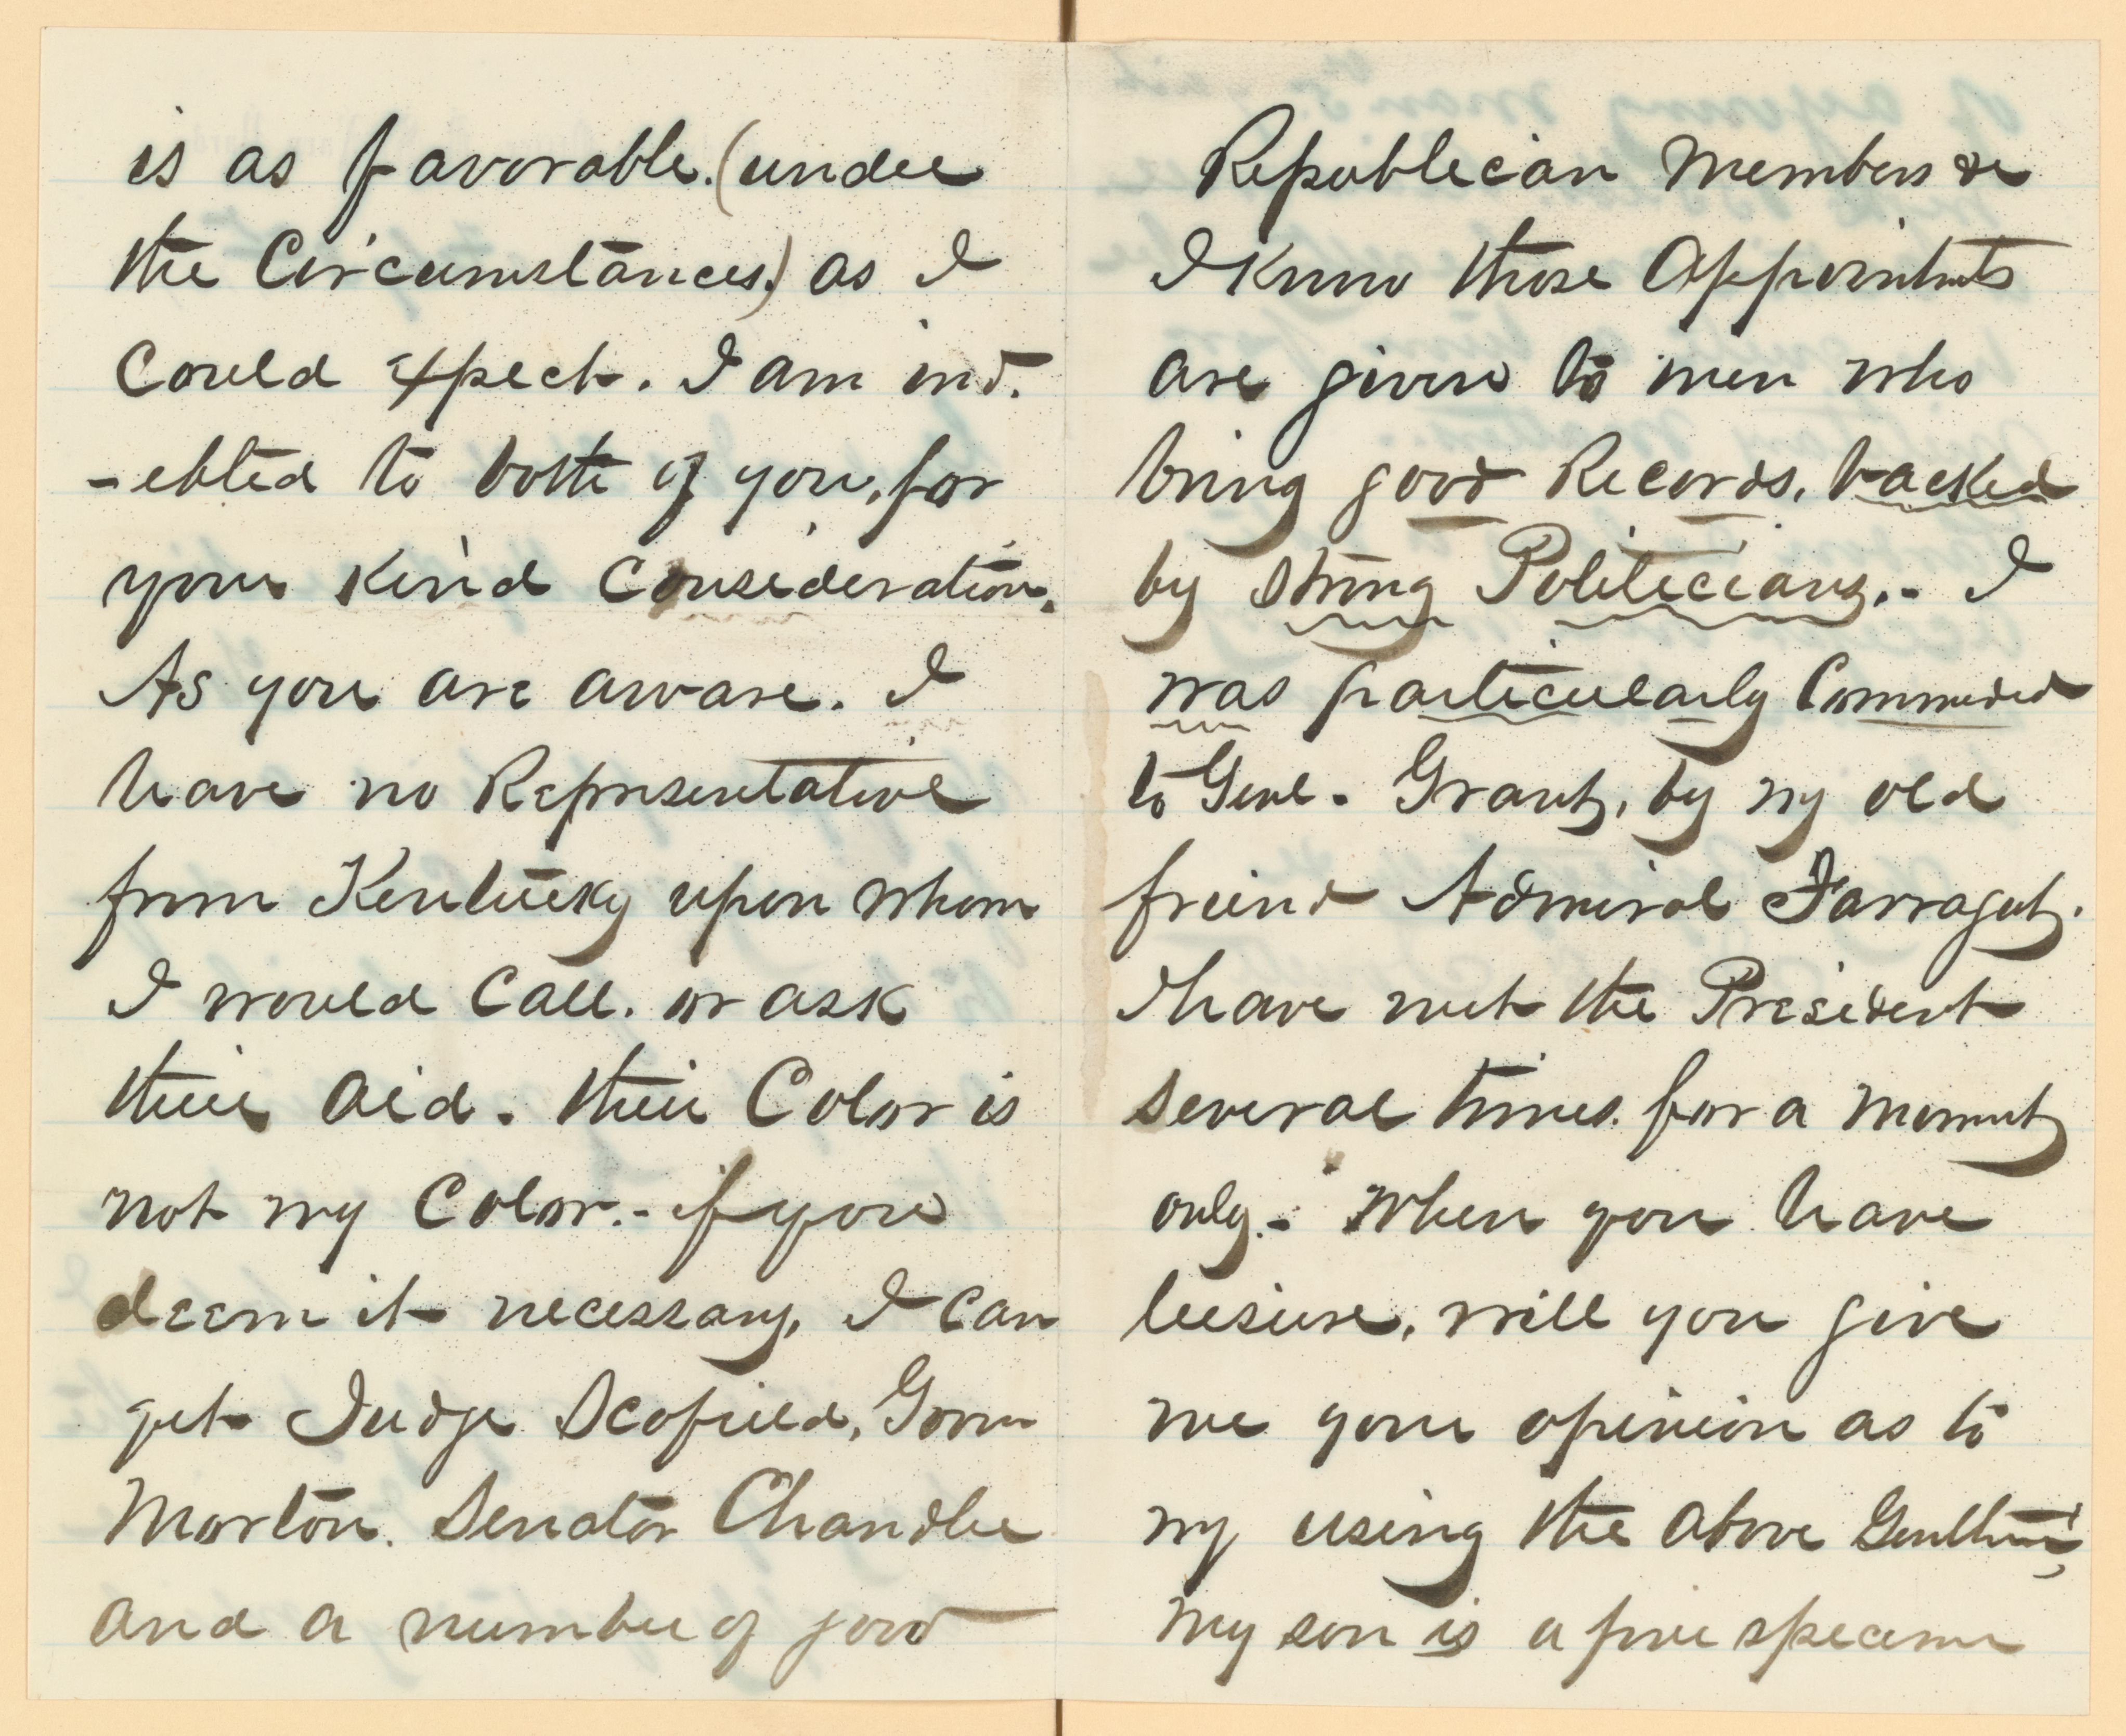 is as favorable. (under
the Circumstances.) as I
Could expect. I am ind.
-ebted to both of you, for
your Kind Consideration.
As you are aware. I
have no Representative
from Kentucky upon whom
I would Call. or ask
their Aid. their Color is
not my Color.- if you
deem it necessary, I can
get Judge Scofield, Govn
Morton. Senator Chandler
and a number of good
Republican Members &c
I Know those Appointmts
are given to men who
bring good Records, backed
by strong Politicians,- I
was particularly Commended
to Genl. Grant, by my old
friend Admiral Farragut.
I have met the President
several times. for a moment
only.- When you have
leisure, will you give
me your opinion as to
my using the above Gentlmn,
My son is a fine specimen